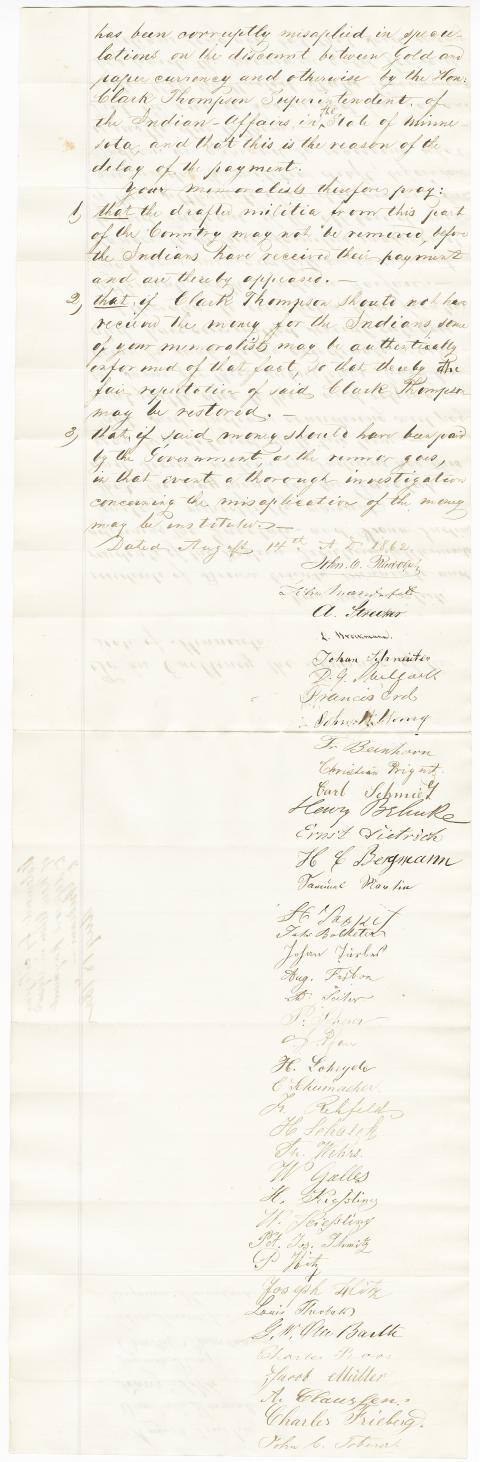 has been corruptly misapplied in specu-
lations on the discount between Gold and
paper currency and otherwise by the Hon:
Clark Thompson Superintendent, of
the Indian-Affairs in the State of Minne-
sota, and that this is the reason of the
delay of the payment.
Your memoralists therefore pray:
1, that the drafted militia from this part
of the Country may not be removed, before
the Indians have received their payment
and are thereby appeased. —
2, that, if Clark Thompson should not have
received the money for the Indians, some
of your memoralists may be authentically
informed of that fact, so that thereby the
fair reputation of said Clark Thompson
may be restored. —
3, that, if said money should have been paid
by the Government as the rumor goes,
in that event a thorough investigation
concerning the misaplication of the money
may be instituted. —
Dated August 14th A.D. 1862.
John C. Rudolph
John
A.
L. Brockmann.
Johan Schneider
Francis Erd
John
Fr Beinhorn
Christian Prignitz
Carl Schmidt
Henry Behnke
Ernst Dietrich
H C Bergmann
Samuel
H
Johan
Aug.
H. Loheyde
C Schumacher
Fr. Rehfeld
H Schalck
Fr. Wehrs.
W Galles
H. Kiessling
W. Kiessling
P Hitz
Joseph Hitz
Louis Theobald
G. W. Otto Barth
Charles Roos
Jacob Müller
A. Claussen.
Charles Frieberg.
John C.